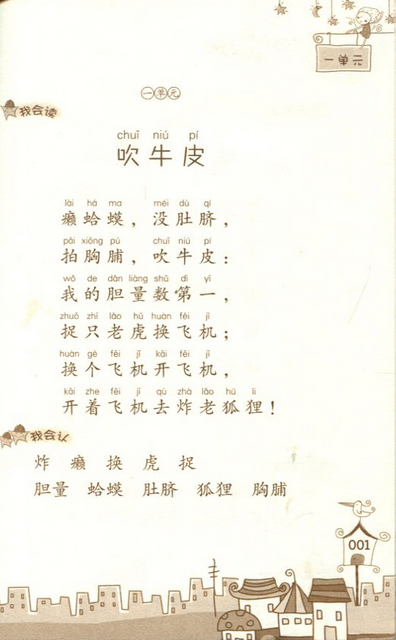 一单元
一单元
我会读
chuī niú pí
吹牛皮
lài há ma méi dù qí
癞蛤蟆，没肚脐，
pāi xiōng pú chuī niú pí
拍胸脯，吹牛皮：
wǒ de dǎn liàng shǔ dì yī
我的胆量数第一，
zhuō zhī lǎo hǔ huàn fēi jī
捉只老虎换飞机；
huàn gè fēi jī kāi fēi jī
换个飞机开飞机，
kāi zhe fēi jī qù zhà lǎo hú li
开着飞机去炸老狐狸！
我会认
炸 癞 换 虎 捉
胆量 蛤蟆 肚脐 狐狸 胸脯
001